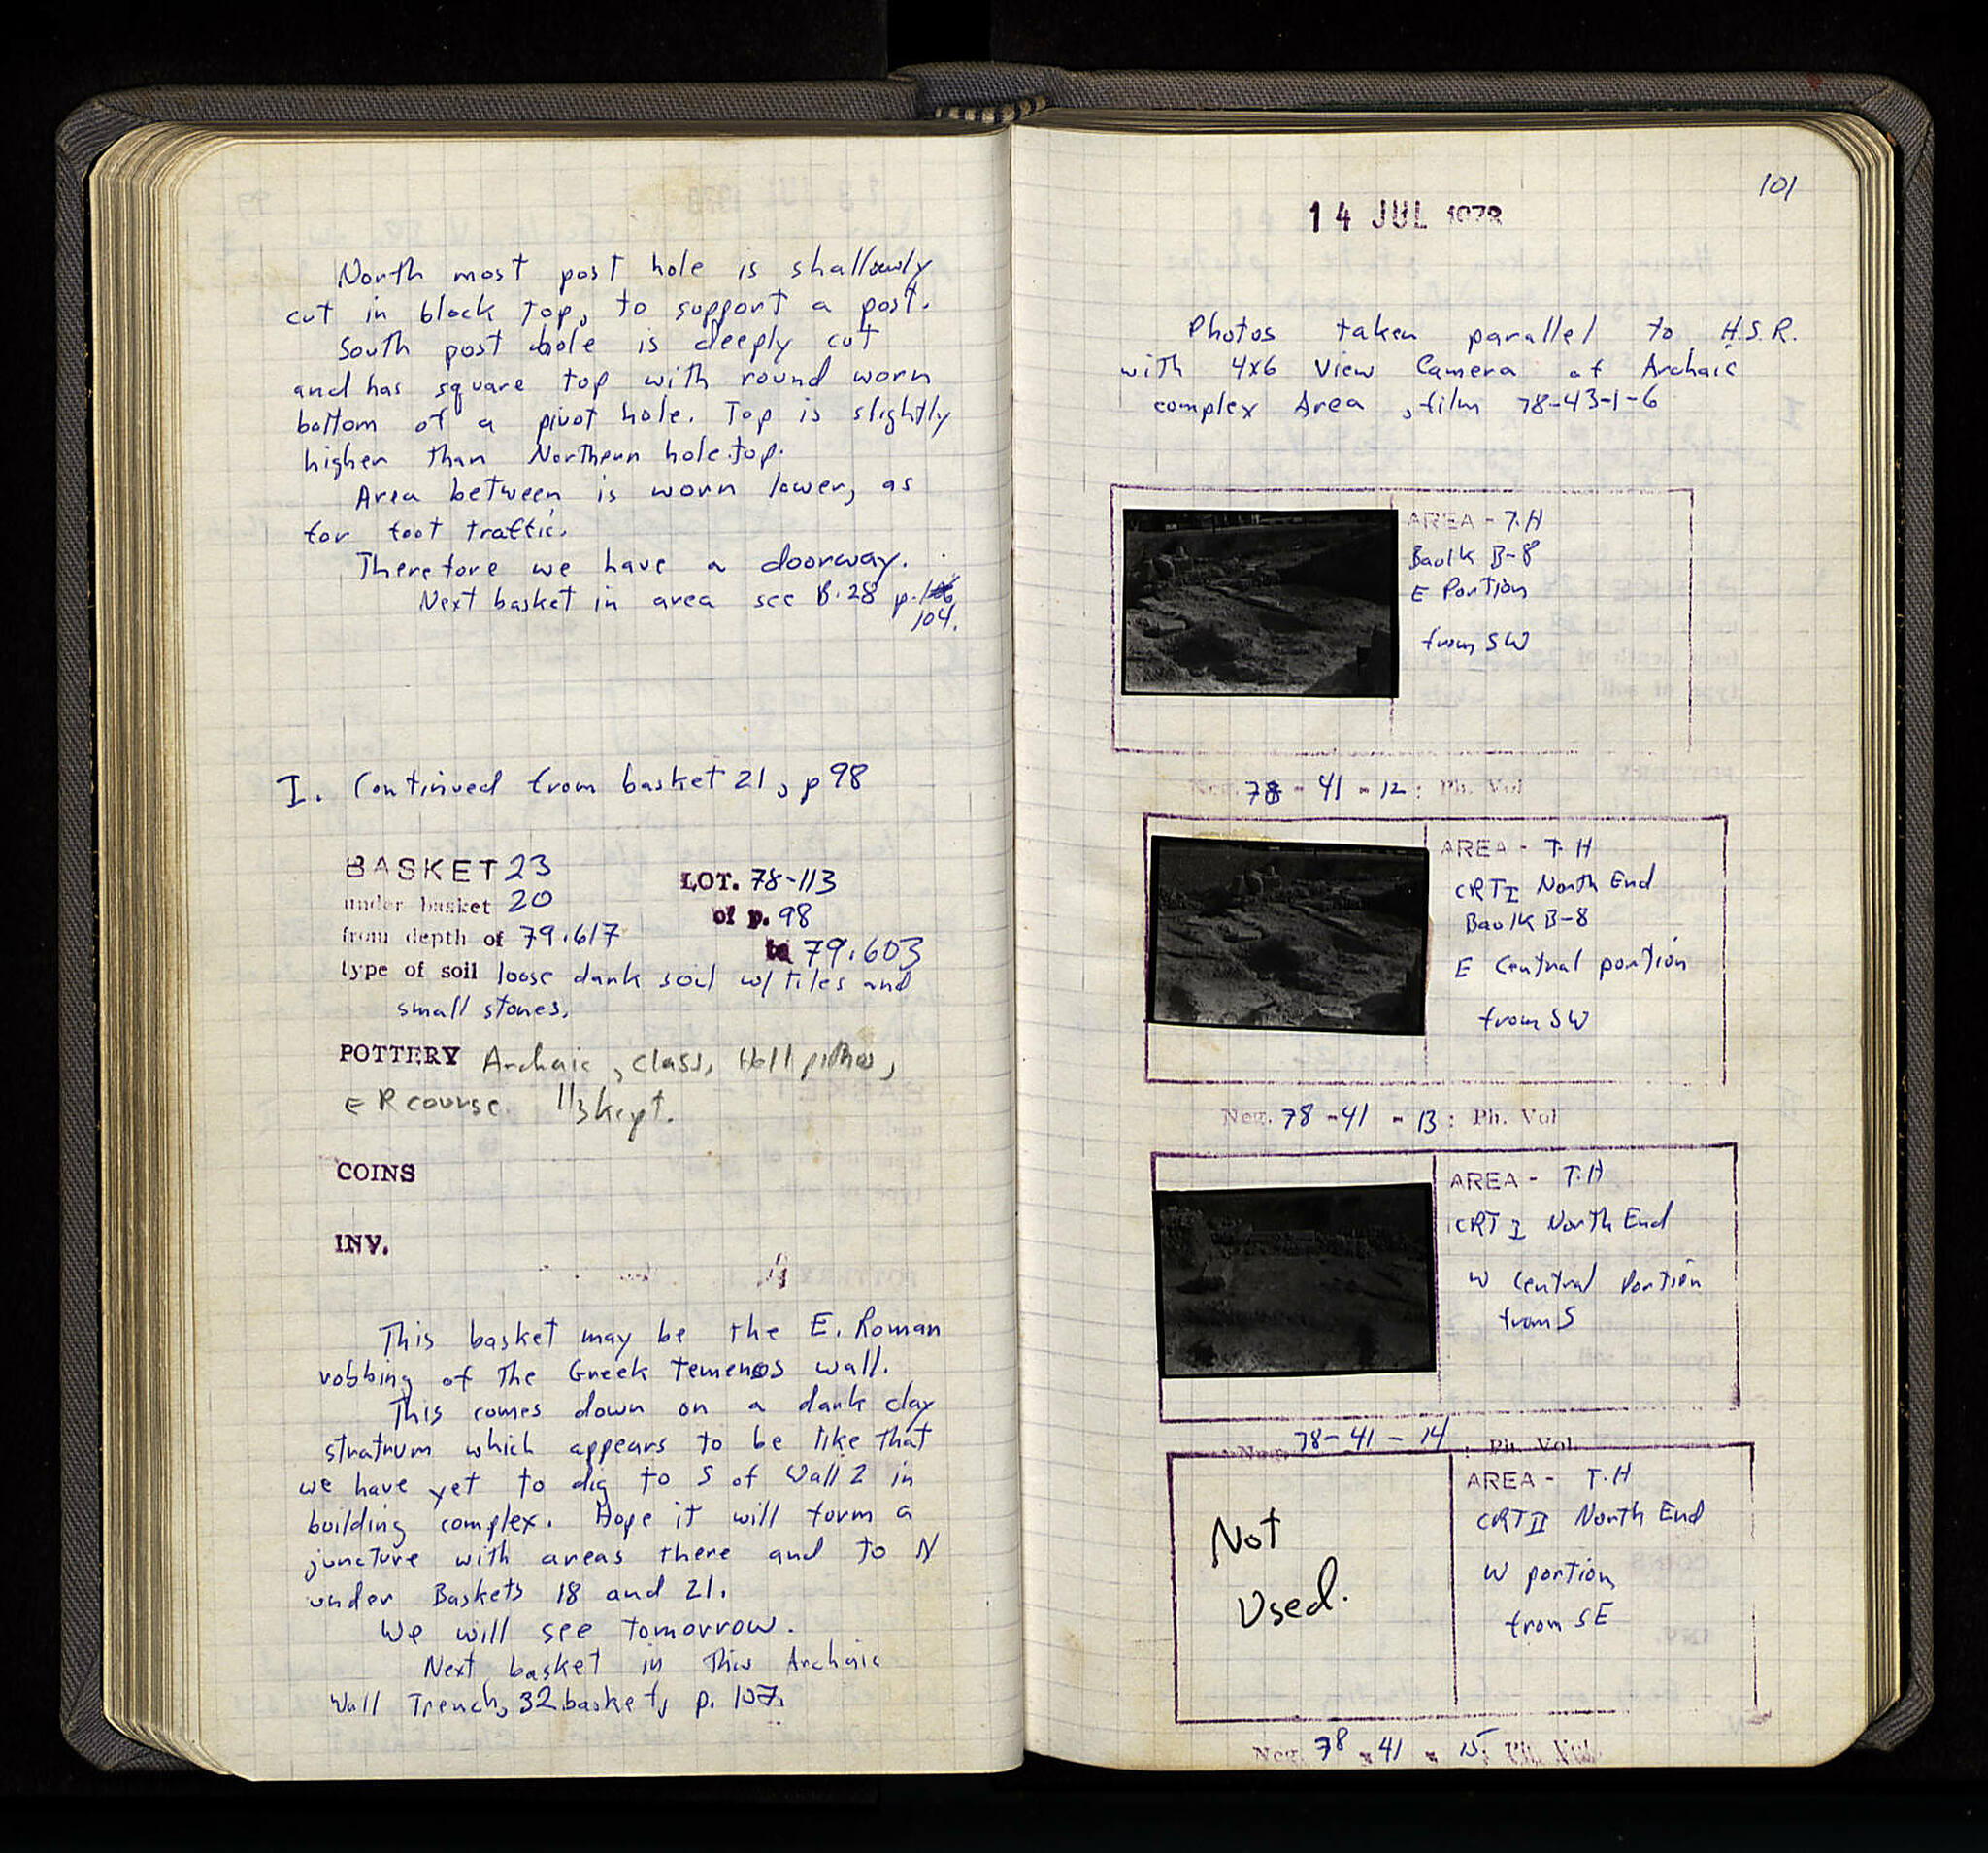 North most post hole is shallowly
cut in block top, to support a post.
South post hole is deeply cut
and has square top with round worn
bottom of a pivot hole. Top is slightly
higher than Northern hole top.
Area between is worn lower, as
for foot traffic.
Therefore we have a doorway.
Next basket in area see B.28 p.
104.
I. Continued from basket 21, p 98
BASKET 23
LOT. 78-113
under basket 20
of p. 98
from depth of 79.617
to 79.603
type of soil loose dark soil w/ tiles and
small stones.
POTTERY Archaic, class, Hell pithos,
E R course. 1/3 kept.
COINS
INV.
This basket may be the E. Roman
robbing of the Greek temenos wall.
This comes down on a dark clay
stratum which appears to be like that
we have yet to dig to S of Wall 2 in
building complex. Hope it will form a
juncture with areas there and to N
under Baskets 18 and 21.
We will see tomorrow.
Next basket in this Archaic
Wall Trench, 32 basket, p. 107.
101
14 JUL 1978
Photos taken parallel to H.S.R.
with 4x6 View Camera of Archaic
complex Area, film 78-43-1-6
AREA - T.H
Baulk B-8
E Portion
from SW
Neg. 78 - 41 - 12: Ph. Vol
AREA - T.H
CRT I North End
Baulk B-8
E Central portion
from SW
Neg. 78 - 41 - 13: Ph. Vol
AREA - T.H
CRT I North End
W Central Portion
from S
Neg. 78-41-14: Ph. Vol.
Not
Used.
AREA - T.H
CRT II North End
W portion
from SE
Neg. 78 - 41 - 15: Ph. Vol.